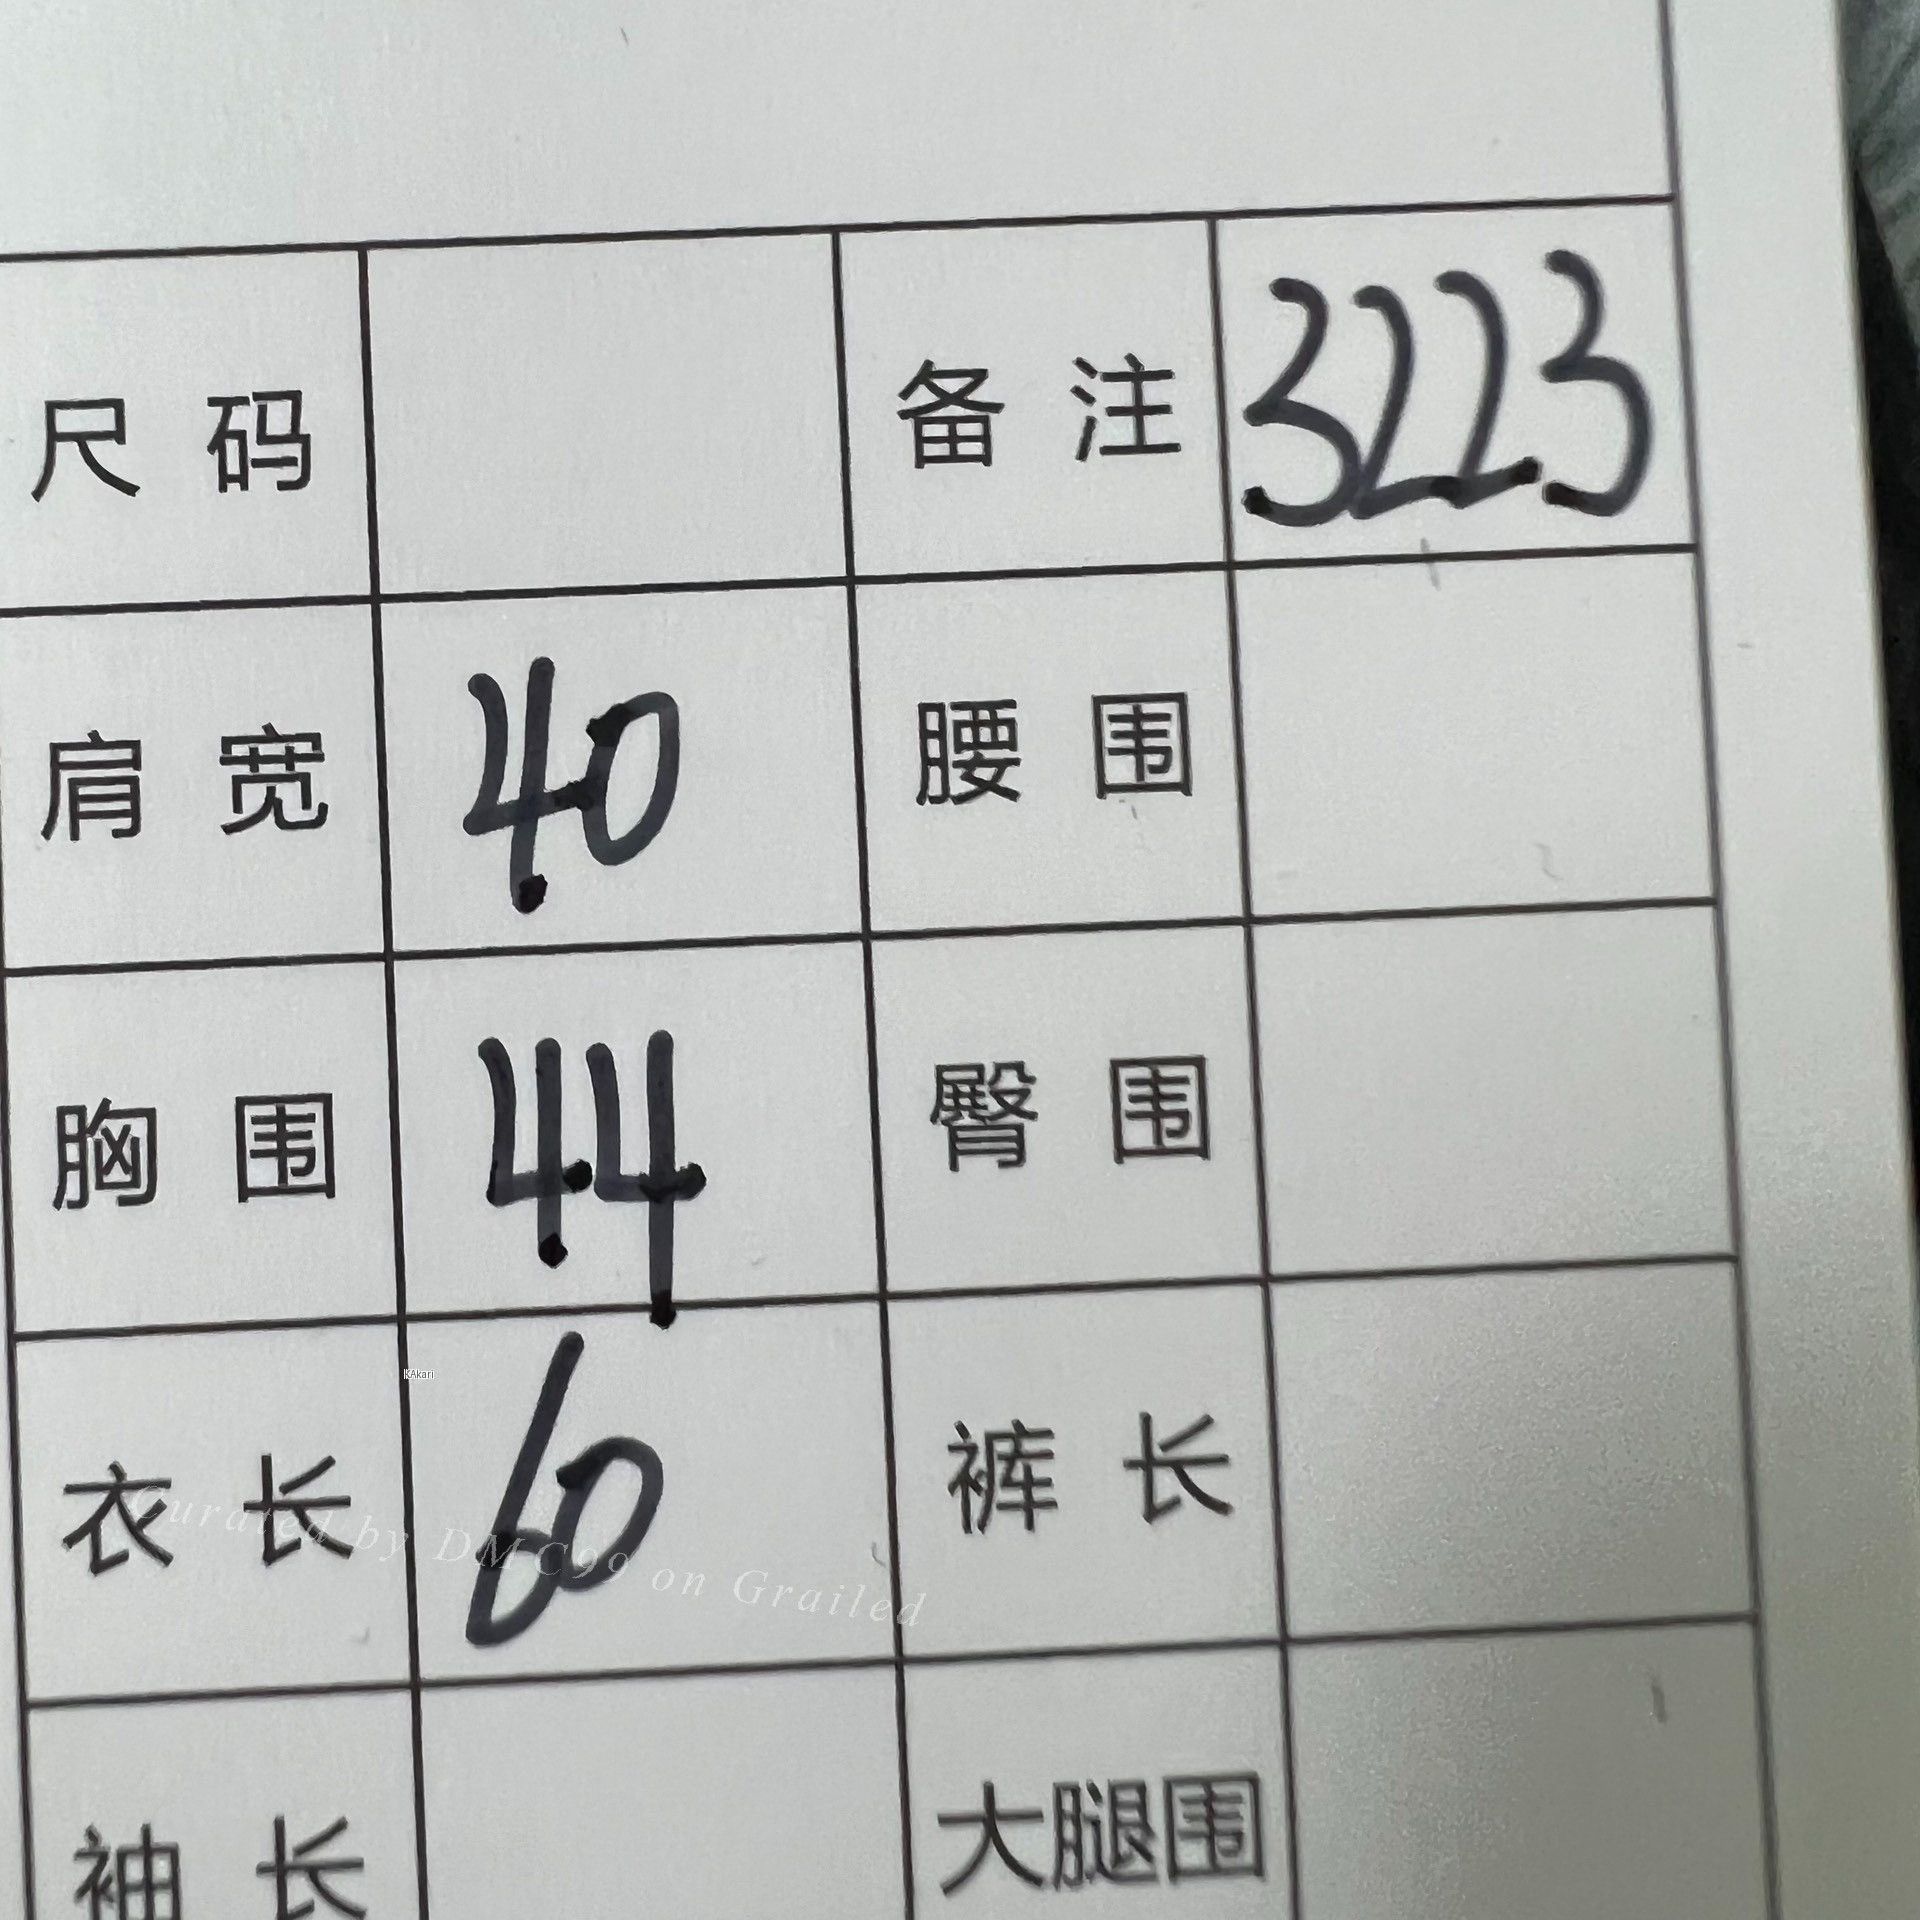 尺 码 备 注 3223
肩 宽 40 腰 围
胸 围 44 臀 围
KAkari
衣 长 60 裤 长
Curated by DMC99 on Grailed
袖 长 大腿围